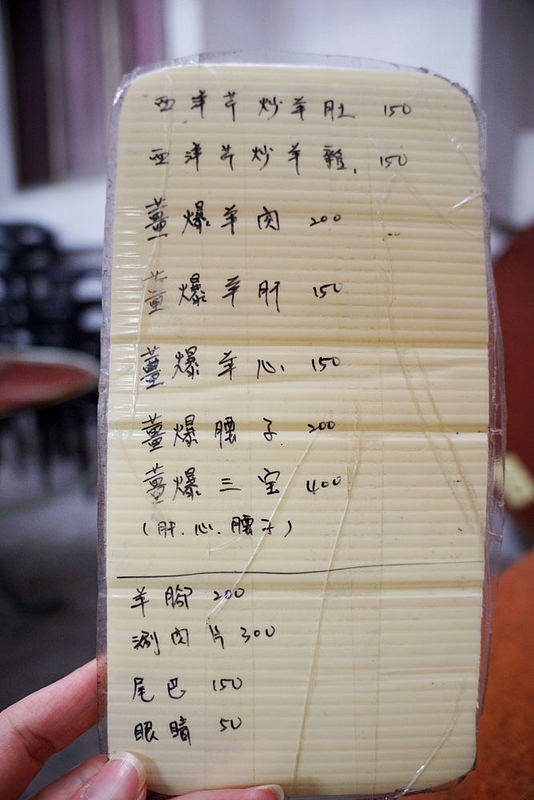 西洋芹炒羊肚 150
西洋芹炒羊雜. 150
薑爆羊肉 200
薑爆羊肝 150
薑爆羊心 150
薑爆腰子 200
薑爆三宝 400
(肝.心.腰子)
羊腳 200
涮肉片 300
尾巴 150
眼睛 50